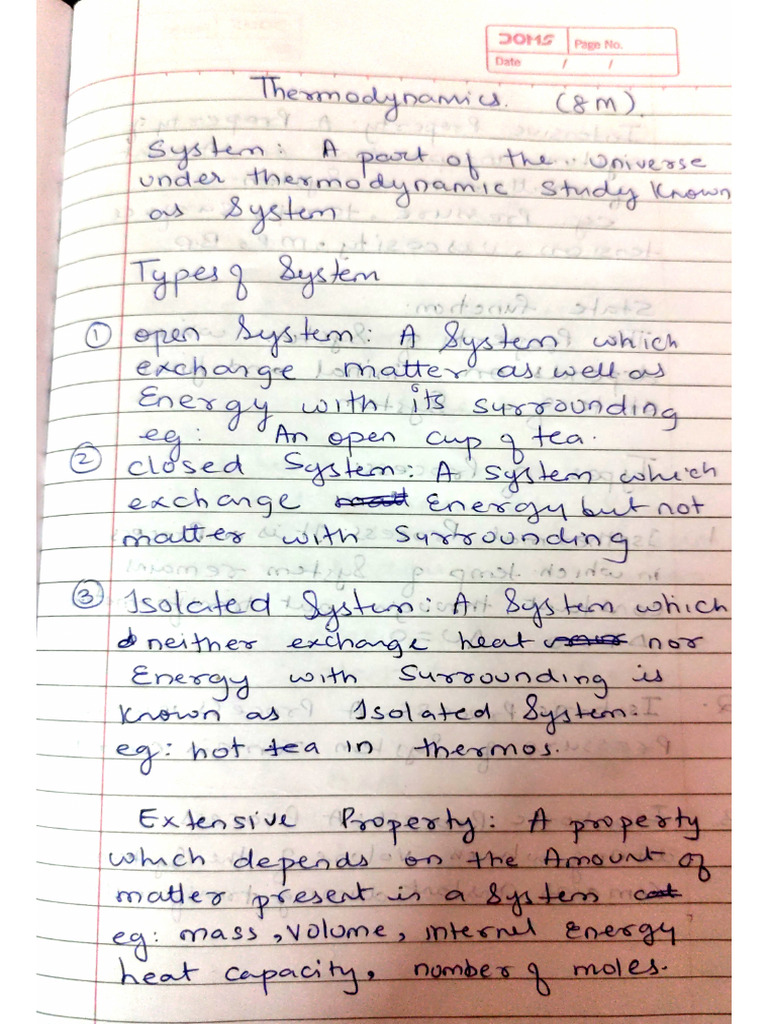 DOMS Page No.
Date / /
Thermodynamics. (8M).
System: A part of the Universe
under thermodynamic study known
as System
Types of System
① open System: A System which
exchange matter as well as
Energy with its surrounding
eg: An open cup of tea.
② closed System: A System which
exchange Energy but not
matter with Surrounding
③ Isolated System: A System which
neither exchange heat nor
Energy with Surrounding is
known as Isolated System.
eg: hot tea in thermos.
Extensive Property: A property
which depends on the Amount of
matter present in a System
eg: mass, volume, internel Energy
heat capacity, number of moles.